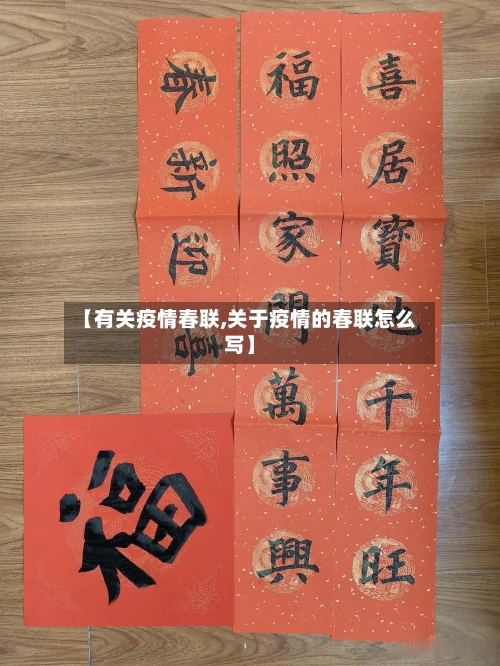 喜居寶地千年旺
福照家門萬事興
春新迎喜
福
【有关疫情春联,关于疫情的春联怎么
写】